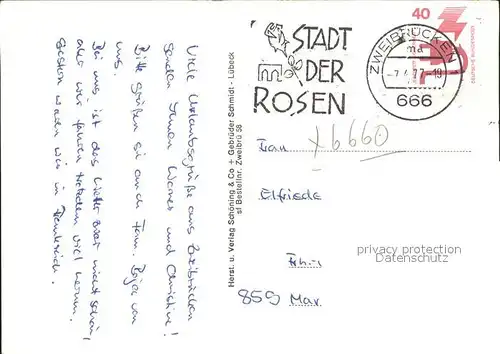 Viele Urlaubsgrüße aus Zweibrücken
senden Ihnen Werner und Christine!
Bitte grüßen Sie auch Fam. von
uns.
Bei uns ist das Wetter zwar nicht schön,
aber wir fahren trotzdem viel herum.
Gestern waren wir in Frankreich.
Herst. u. Verlag Schöning & Co + Gebrüder Schmidt - Lübeck
sf Bestellnr. Zweibrü 58
STADT
DER
ROSEN
ZWEIBRÜCKEN
ma
-7.4.77-18
666
40
DEUTSCHE BUNDESPOST
x6660
Frau
Elfriede
privacy protection
Datenschutz
859 Mar